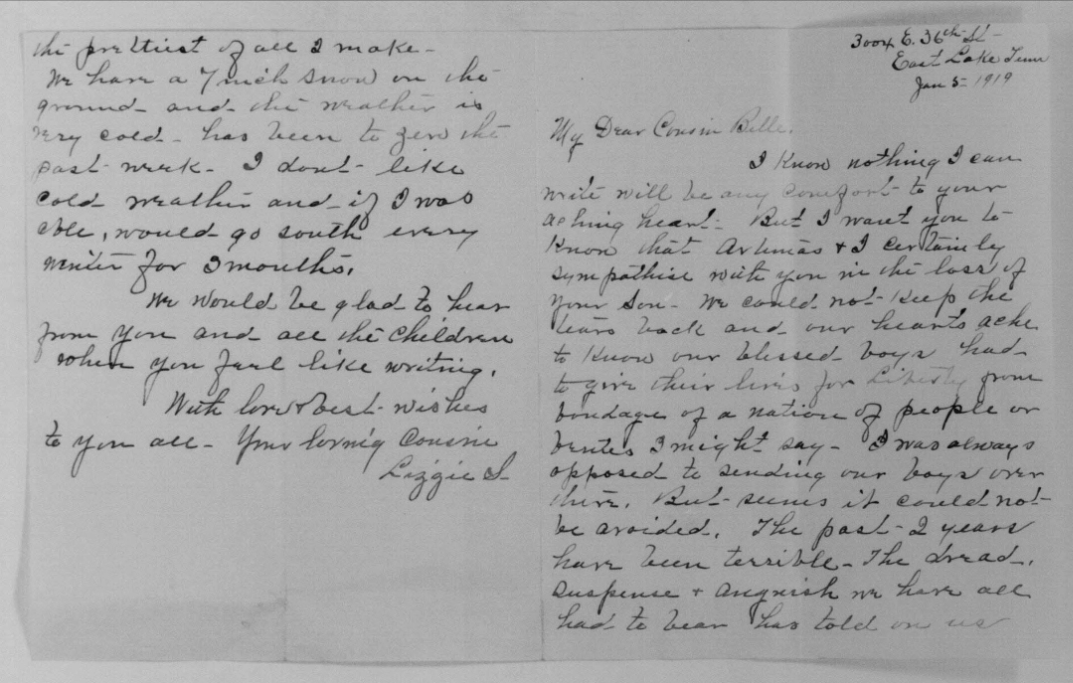 3004 E. 36th St-
East Lake Tenn
Jan 5- 1919
My Dear Cousin Belle.
I know nothing I can
write will be any comfort- to your
aching heart- But I want you to
know that Artimas & I certainly
sympathise with you in the loss of
your son- We could not- keep the
tears back and our hearts ache
to know our blessed boys had
to give their lives for Liberty from
bondage of a nation of people or
brutes I might say- I was always
opposed to sending our boys over
there. But- seems it could not-
be avoided. The past- 2 years
have been terrible- The dread,
suspense & anguish we have all
had to bear has told on us
the prettiest of all I make-
We have a 7 inch snow on the
ground- and the weather is
very cold- has been to zero the
past- week- I don't- like
cold weather and if I was
able, would go south every
winter for 3 months.
We would be glad to hear
from you and all the children
when you feel like writing.
With love & best- wishes
to you all- Your loving Cousin
Lizzie S-